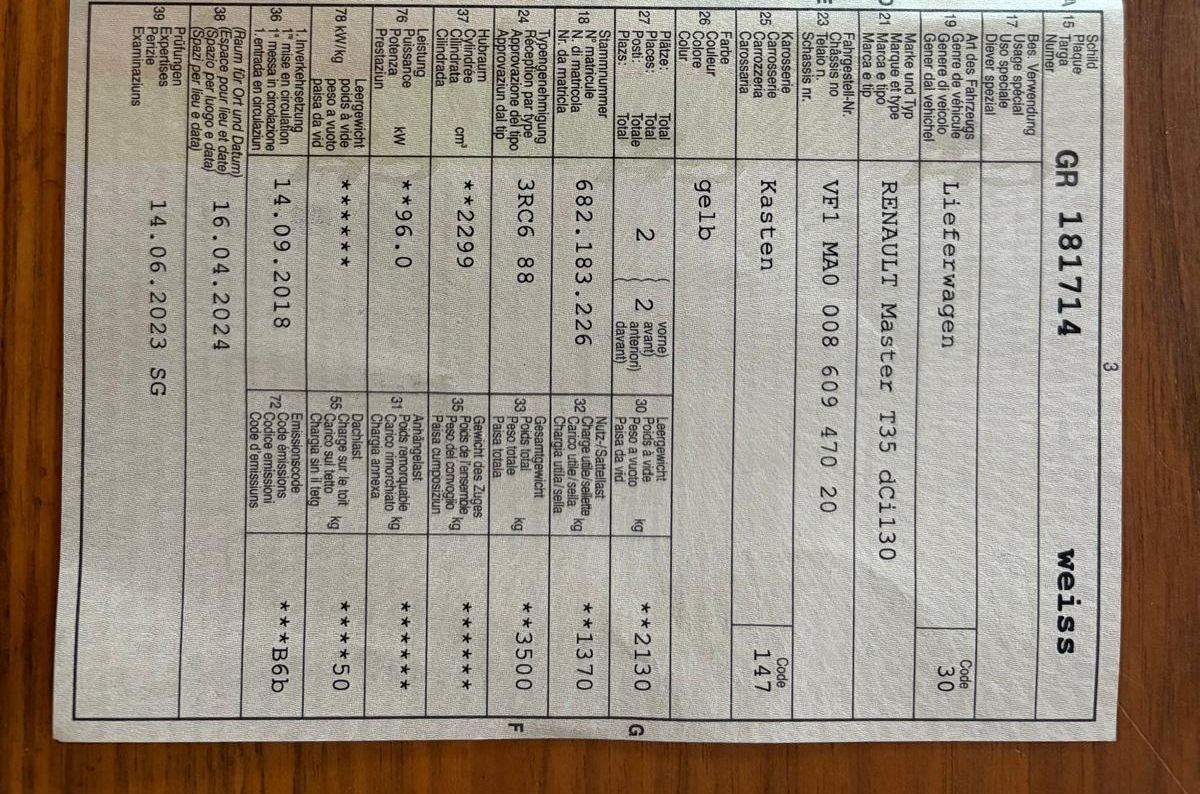 3
Schild
Plaque
15 Targa
Numer
GR 181714 weiss
Bes. Verwendung
17 Usage spécial
Uso speciale
Diever spezial
Art des Fahrzeugs
19 Genre de véhicule
Genere di veicolo
Gener dal vehichel
Lieferwagen
Code
30
Marke und Typ
21 Marque et type
Marca e tipo
Marca e tip
RENAULT Master T35 dCi130
Fahrgestell-Nr.
E 23 Châssis no
Telaio n.
Schassis nr.
VF1 MA0 008 609 470 20
Karosserie
25 Carrosserie
Carrozzeria
Carossaria
Kasten
Code
147
Farbe
26 Couleur
Colore
Colur
gelb
Plätze: Total
27 Places: Total
Posti: Totale
Plazs: Total
2
2
vorne)
avant)
anteriori)
davant)
Leergewicht
30 Poids à vide
Peso a vuoto kg
Paisa da vid
**2130
G
Stammnummer
18 N° matricule
N. di matricola
Nr. da matricla
682.183.226
Nutz-/Sattellast
32 Charge utile/sellette kg
Carico utile/sella
Chargia utila/sella
**1370
Typengenehmigung
24 Réception par type
Approvazione del tipo
Approvaziun dal tip
3RC6 88
Gesamtgewicht
33 Poids total
Peso totale kg
Paisa totala
**3500
F
Hubraum
37 Cylindrée
Cilindrata cm³
Cilindrada
**2299
Gewicht des Zuges
35 Poids de l'ensemble
Peso del convoglio kg
Paisa cumposiziun
******
Leistung
76 Puissance
Potenza kW
Prestaziun
**96.0
Anhängelast
31 Poids remorquable
Carico rimorchiato kg
Chargia annexa
******
Leergewicht
78 kW/kg poids à vide
peso a vuoto
paisa da vid
******
Dachlast
55 Charge sur le toit
Carico sul tetto kg
Chargia sin il tetg
****50
1. Inverkehrsetzung
36 1re mise en circulation
1a messa in circolazione
1. entrada en circulaziun
14.09.2018
Emissionscode
72 Code émissions
Codice emissioni
Code d'emissiuns
***B6b
(Raum für Ort und Datum)
38 (Espace pour lieu et date)
(Spazio per luogo e data)
(Spazi per lieu e data)
16.04.2024
Prüfungen
39 Expertises
Perizie
Examinaziuns
14.06.2023 SG